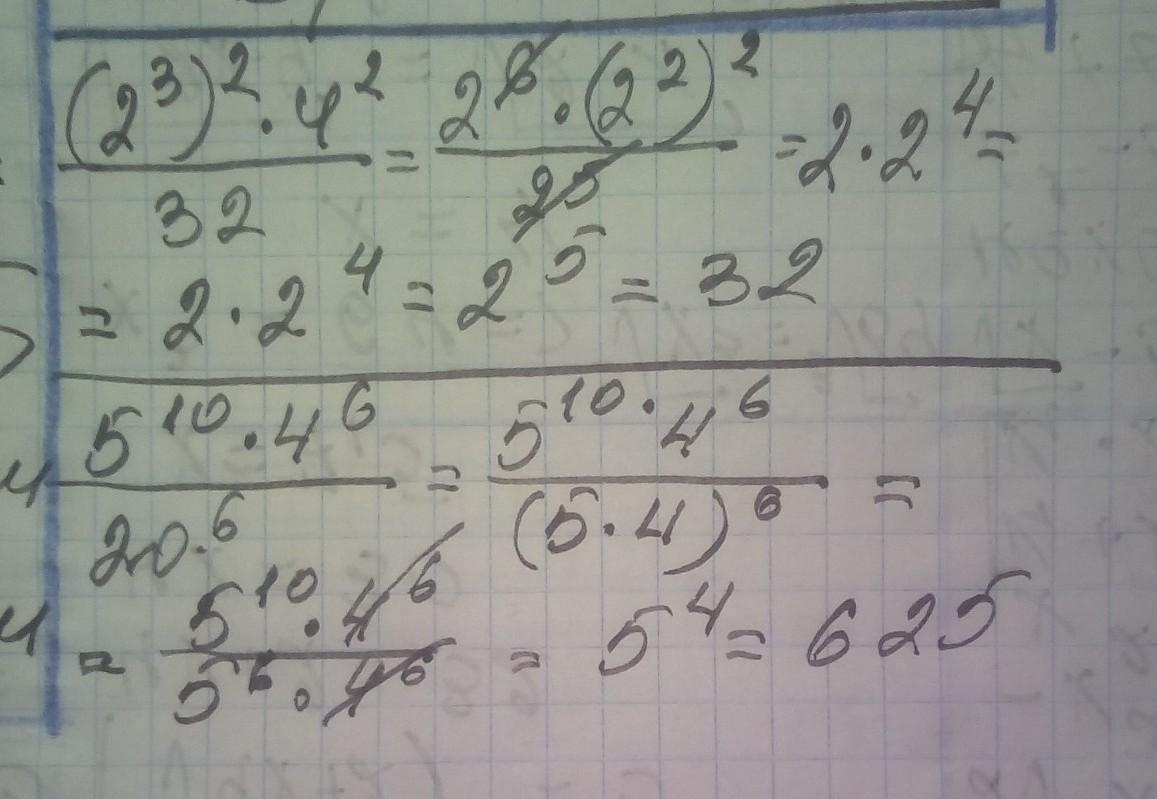 (2³)² · 4² / 32 = 2⁶ · (2²)² / 2⁵ = 2 · 2⁴ =
= 2 · 2⁴ = 2⁵ = 32
5¹⁰ · 4⁶ / 20⁶ = 5¹⁰ · 4⁶ / (5 · 4)⁶ =
= 5¹⁰ · 4⁶ / 5⁶ · 4⁶ = 5⁴ = 625